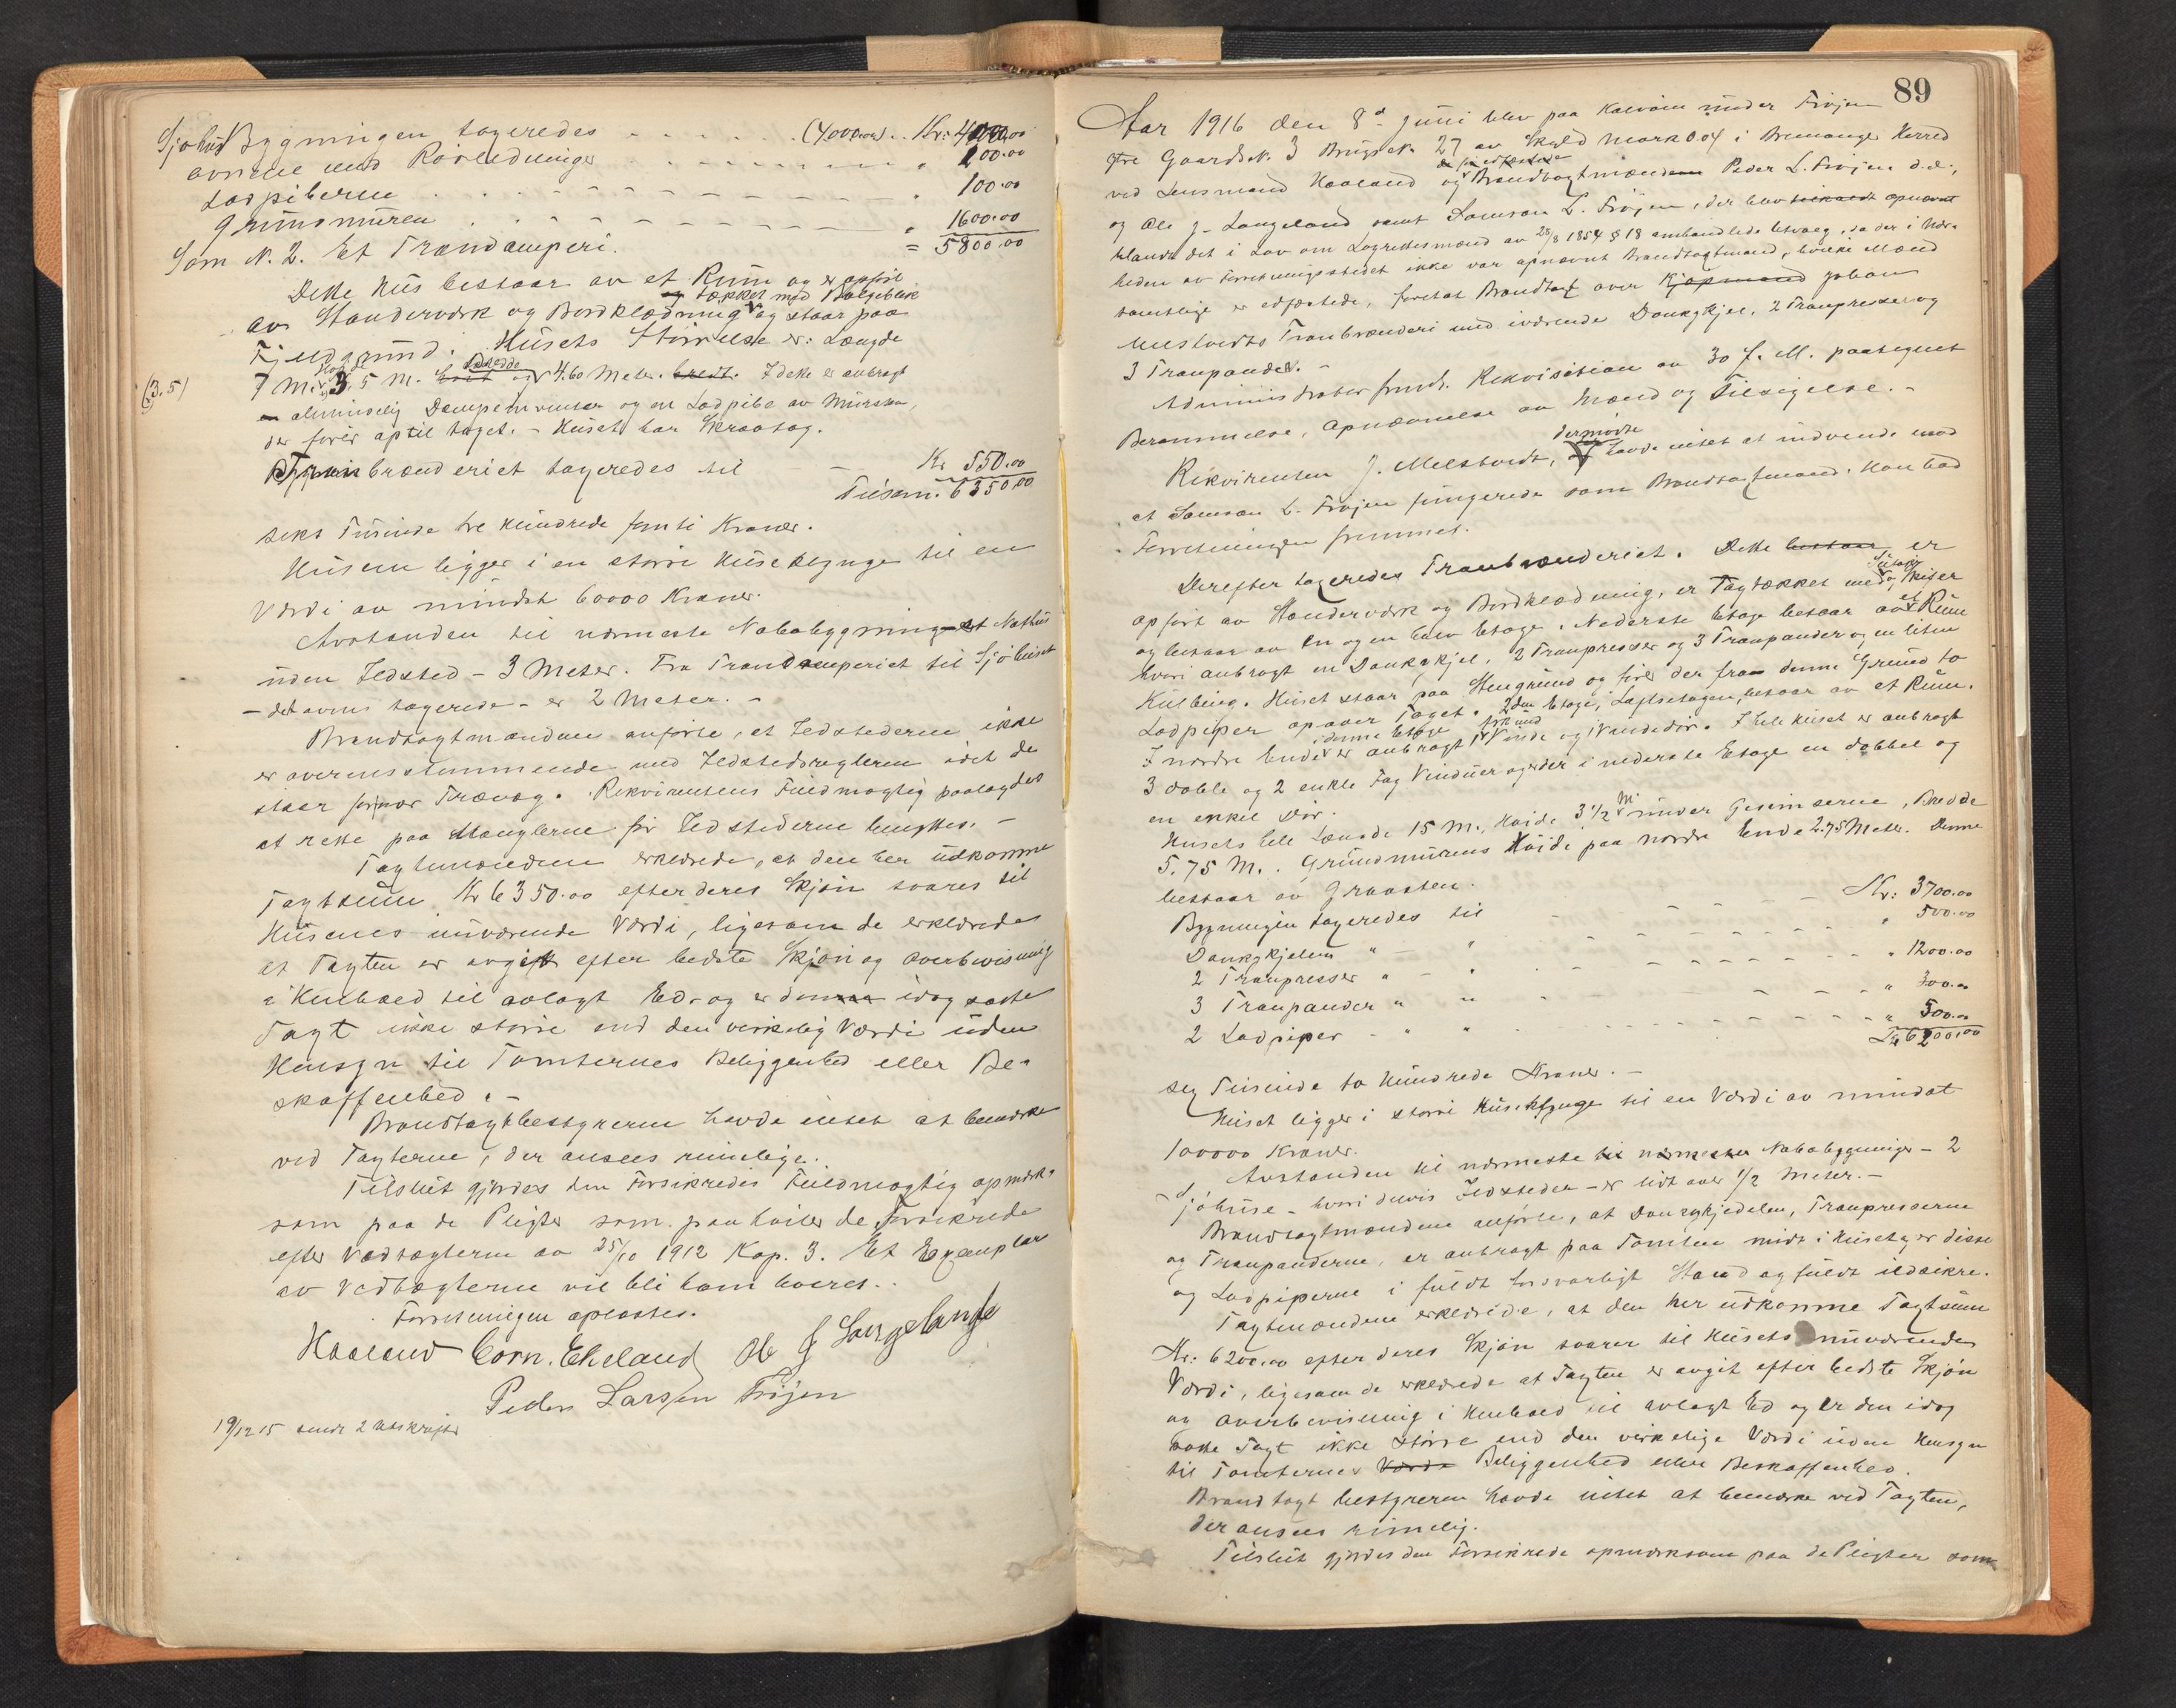 Sjøhus Bygningen taxeredes (4000.00) Kr: 4000.00
ovnene med Rørledninger " 100.00
Ladpiberne " 100.00
Grundmuren " 1600.00
Som N. 2. Et Trandamperi. = 5800.00
Dette Hus bestaar av et Rum og er opført
av Standerværk og Bordklædning og tækket med Bølgeblik og staar paa
Fjeldgrund. Husets Størrelse er: Længde
(3.5) 7 M. Høide 3,5 M. og Bredde 4.60 Meter. I dette er anbragt
en almindelig Dampe og en Ladpibe av Mursten,
der fører op til taget. - Huset har Skraatag.
Tranbrænderiet taxeredes til - Kr 550.00
Tilsam. 6350.00
seks Tusinde tre Hundrede femti Kroner.
Husene ligger i en større Huseklynge til en
Værdi av mindst 60000 Kroner.
Avstanden til nærmeste Nabobygning et Nøsthus
uden Ildsted - 3 Meter. Fra Trandamperiet til Sjøhuset
- det ovens taxerede - er 2 Meter. -
Brandtaxtmændene anførte, at Ildstederne ikke
er overensstemmende med Ildstedsreglerne idet de
staar for nær Trævæg. Rekvirentens Fuldmægtig paalagdes
at rette paa Manglerne før Ildstederne benyttes. -
Taxtmændene erklærede, at den her udkomne
Taxtsum Kr 6350.00 efter deres Skjøn svarer til
Husenes nuværende Værdi, ligesom de erklærede
at Taxten er avgit efter bedste Skjøn og Overbevisning
i Henhold til avlagt Ed. og er denne idag satte
Taxt ikke større end den virkelig Værdi uden
Hensyn til Tomternes Beliggenhed eller Be-
skaffenhed. -
Brandtaxtbestyreren havde intet at bemærke
ved Taxterne, der ansees rimelige.
Tilslut gjordes den Forsikredes Fuldmægtig opmærk-
som paa de Pligter som paahviler de Forsikrede
efter Vedtægterne av 25/10 1912 Kap. 3. Et Exemplar
av Vedtægterne vil bli ham leveret.
Forretningen oplæstes.
Haaland Corn. Ekeland Ole J Langeland
Peder Larsen Frøjen
19/12 15 sendt 2 Utskrifter
89
Aar 1916 den 8de Juni blev paa Kalvøen under Frøjen
ytre Gaards N. 3 Brugs N. 27 av Skyld mark 0.04 i Bremanger Herred
ved Lensmand Haaland og Brandtaxtmændene Peder L. Frøjen d.æ.,
og Ole J. Langeland samt Samson L. Frøjen, der blev opnævnt
blandt det i Lov om Lagrettesmænd av 28/8 1854 § 18 omhandlede Utvalg, da der i Nær-
heden av Forretningsstedet ikke var opnævnt Brandtaxtmænd, hvilke Mænd
samtlige er edfæstede, foretat Brandtaxt over Kjøpmand Johan
Melstvedts Tranbrænderi med iværende Dankgkjel, 2 Tranpresser og
3 Tranpander. -
Administrator freml. Rekvisition av 30 f. M. paategnet
Berammelse, Opnævnelse av Mænd og Tilsigelse. -
Rekvirenten J. Melstvedt, dermødte havde intet at indvende mod
at Samson L. Frøjen fungerede som Brandtaxtmand. Han bad
Forretningen fremmet.
Derefter taxeredes Tranbrænderiet. Dette bestaar er
opført av Standerværk og Bordklædning, er Tagtækket med og Skifer
og bestaar av en og en halv Etage. Nederste Etage bestaar av et Rum
hvori anbragt en Dankgkjel, 2 Tranpresser og 3 Tranpander og en liten
Kulbing. Huset staar paa Stengrund og fører der fra denne Grund to
Ladpiper op over Taget. 2den Etage, Loftsetagen, bestaar av et Rum.
I nordre Ende i denne Etage er anbragt 1 Vinde og 1 Vindedør. I hele Huset er anbragt
3 doble og 2 enkle Fag Vinduer og der i nederste Etage en dobbel og
en enkel Dør.
Husets hele Længde 15 M., Høide 3 1/2 M under Gesimserne, Bredde
5.75 M. Grundmurens Høide paa nordre Ende 2.75 Meter. Denne
bestaar av Graasten.
Bygningen taxeredes til Kr: 3700.00
Dankgkjelen " " " 500.00
2 Tranpresser " " " 1200.00
3 Tranpander " " " 300.00
2 Ladpiper " " " 500.00
Kr 6200.00
sex Tusinde to Hundrede Kroner. -
Huset ligger i større Huseklynge til en Værdi av mindst
100000 Kroner.
Avstanden til nærmeste til nærmeste Nabobygninger - 2
Sjøhuse - hvori delvis Ildsteder - er lidt over 1/2 Meter. -
Brandtaxtmændene anførte, at Dankgkjedelen, Tranpresserne
og Tranpanderne, er anbragt paa Tomten midt i Huset og er disse
og Ladpiperne i fuldt forsvarligt Stand og fuldt ildsikre.
Taxtmændene erklærede, at den her udkomne Taxtsum
Kr: 6200.00 efter deres Skjøn svarer til Husets nuværende
Værdi, ligesom de erklærede at Taxten er avgit efter bedste Skjøn
og Overbevisning i Henhold til avlagt Ed og er den idag
satte Taxt ikke større end den virkelige Værdi uden Hensyn
til Tomternes Værdi Beliggenhed eller Beskaffenhed.
Brandtaxtbestyreren havde intet at bemærke ved Taxten,
der ansees rimelig.
Tilslut gjordes den Forsikrede opmærksom paa de Pligter som